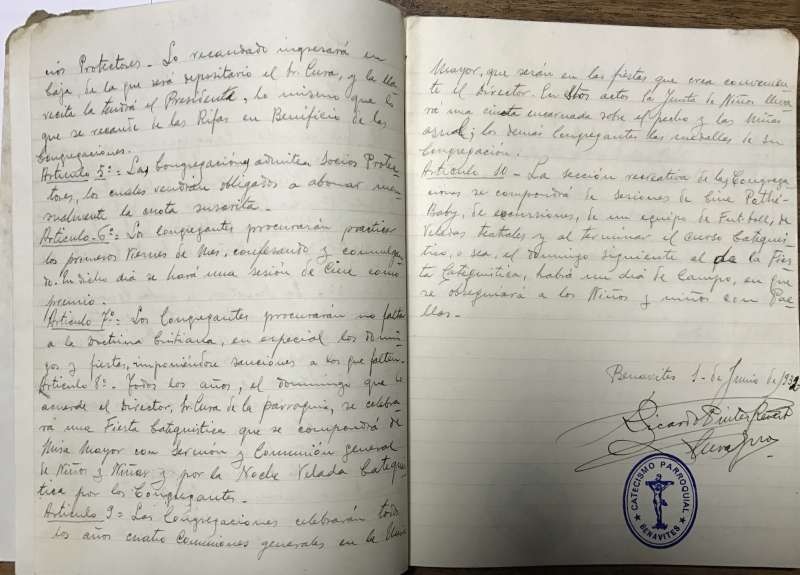 cios Protectores.- Lo recaudado ingresará en
Caja, de la que será depositario el Sr. Cura, y la lla-
vecita la tendrá el Presidente, lo mismo que lo
que se recaude de las Rifas en Beneficio de las
Congregaciones.
Articulo 5º = Las Congregaciones admiten Socios Protec-
tores, los cuales vendrán obligados a abonar men-
sualmente la cuota suscrita.
Articulo-6º = Los Congregantes procurarán practicar
los primeros Viernes de Mes, confesando y comulgan-
do. En dicho dia se hará una sesión de Cine como
premio.
Articulo 7º = Los Congregantes procurarán no faltar
a la Doctrina Cristiana, en especial los domin-
gos y fiestas, imponiéndose sanciones a los que falten.
Articulo 8º. Todos los años, el domingo que
acuerde el Director, Sr. Cura de la parroquia, se celebra-
rá una Fiesta Catequistica que se compondrá de
Misa Mayor con Sermon y Comunión general
de Niños y Niñas y por la Noche Velada Catequis-
tica por los Congregantes.
Articulo 9 = Las Congregaciones celebrarán todos
los años cuatro Comuniones generales en la Misa
Mayor, que serán en las fiestas que crea convenien-
te el Director. En Estos actos la Junta de Niños lleva-
rá una cinta encarnada sobre el pecho y las Niñas
azul, y los demás Congregantes las medallas de su
Congregación.
Articulo 10 - La sección recreativa de las Congrega-
ciones se compondrá de sesiones de Cine Pathé-
Baby, de excursiones, de un equipo de Futboll, de
Veladas teatrales y al terminar el curso Catequis-
tico, o sea, el domingo siguiente al de la Fies-
ta Catequistica, habrá un dia de Campo, en que
se obsequiará a los Niños y niñas con Pae-
llas.-
Benavites 1-de Junio de 1932
Ricardo
Cura
CATECISMO PARROQUIAL
BENAVITES